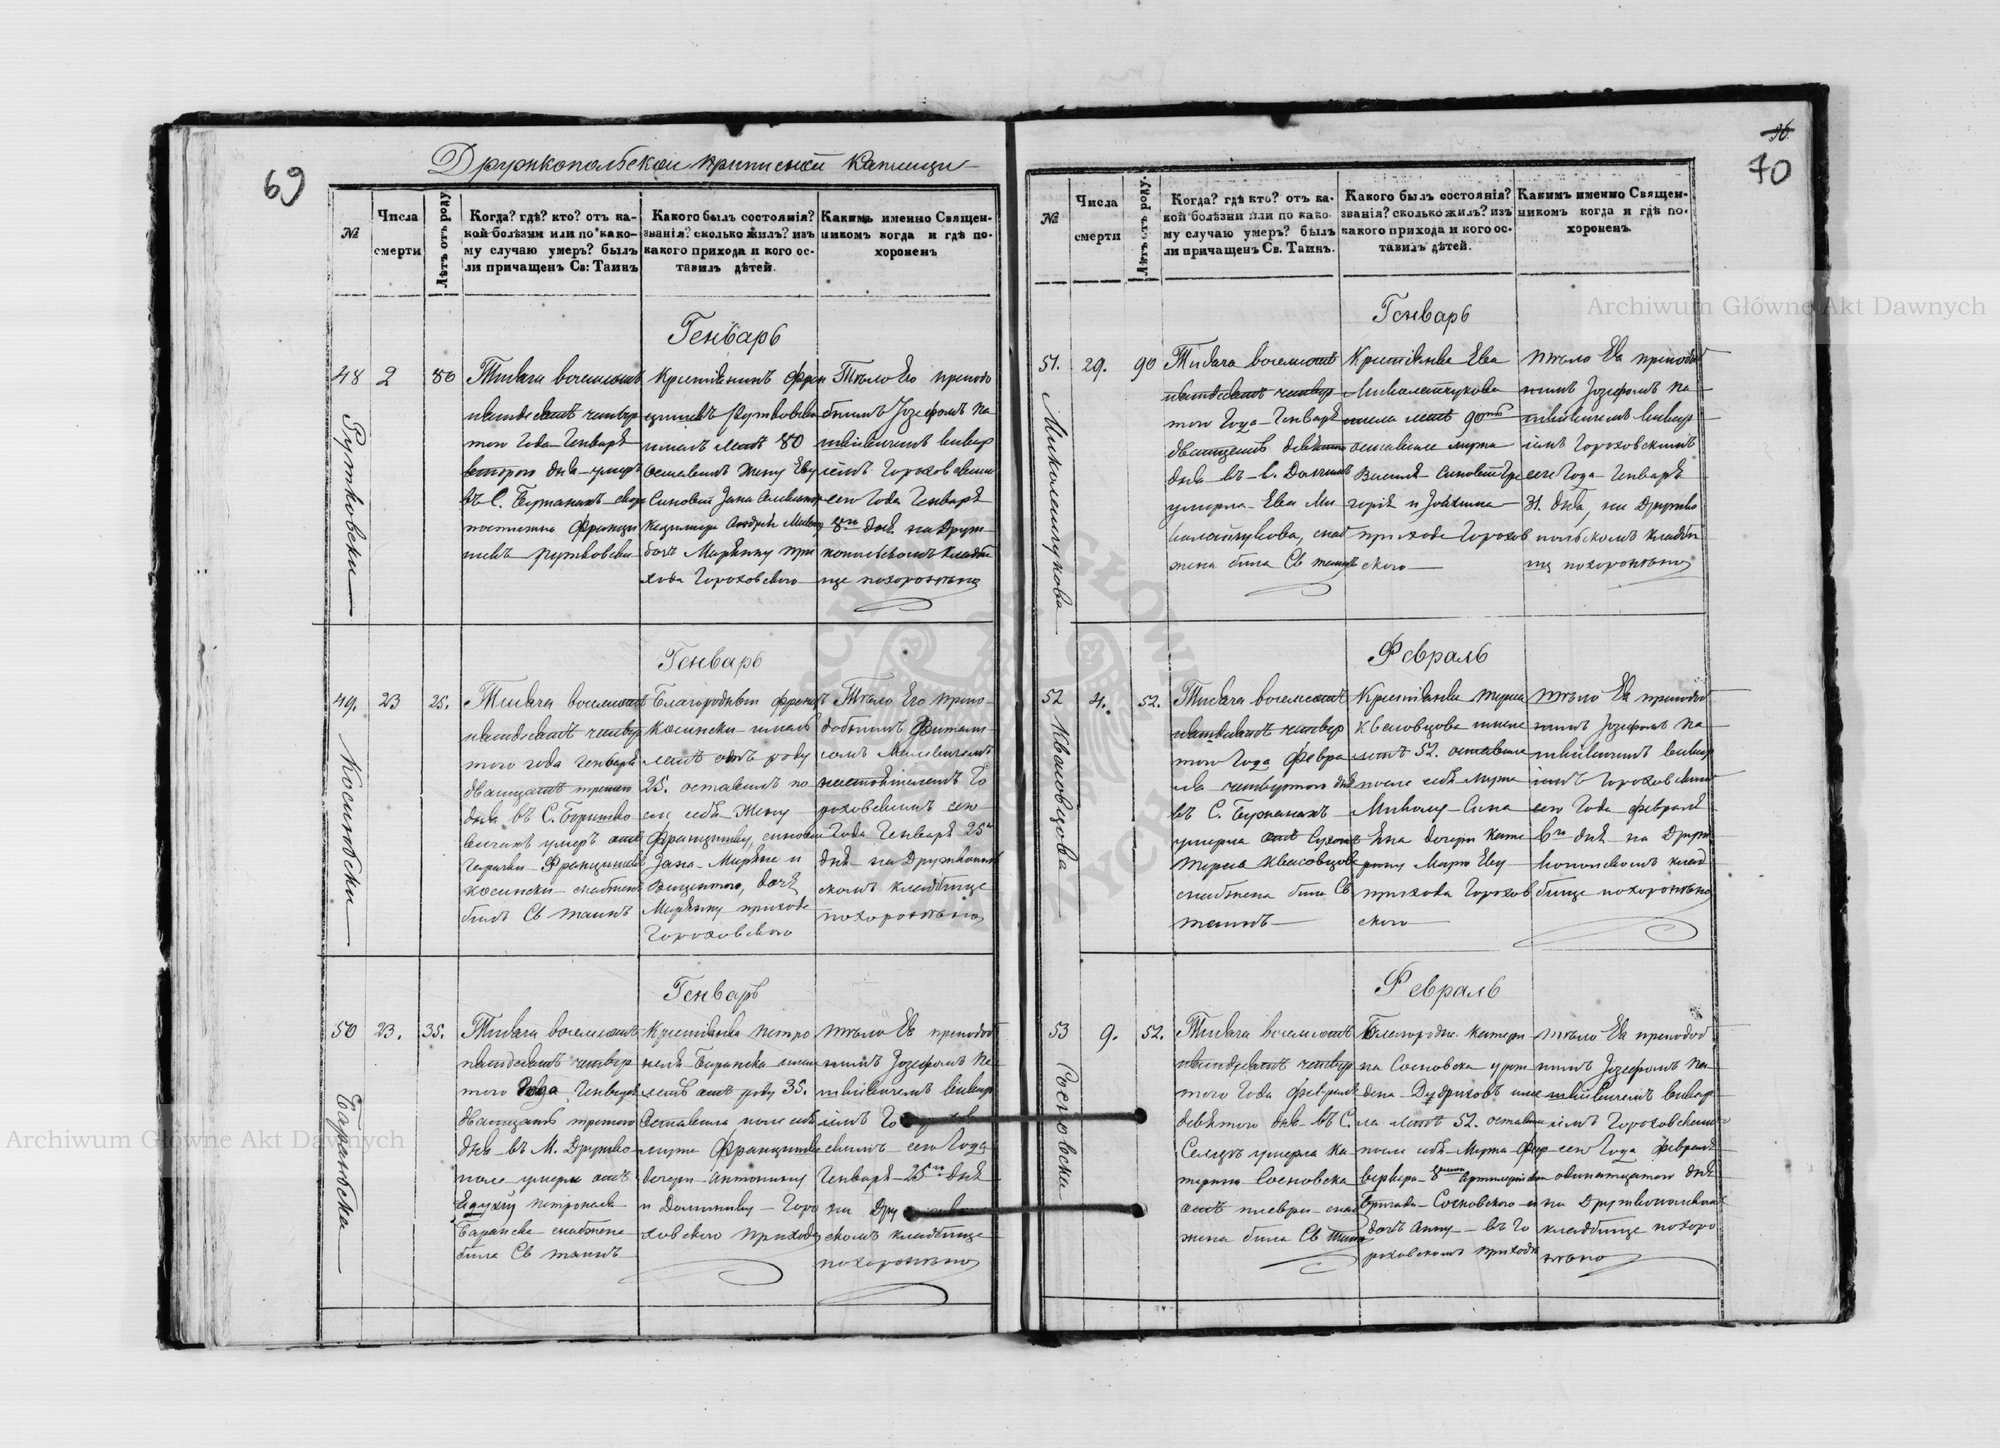 69
Дружкопольской приписной каплицы
№
Числа смерти
Лѣтъ отъ роду
Когда? гдѣ? кто? отъ ка-
кой болѣзни или по како-
му случаю умеръ? былъ
ли причащенъ Св: Таинъ
Какого былъ состоянія?
званія? сколько жилъ? изъ
какого прихода и кого ос-
тавилъ дѣтей.
Какимъ именно Священ-
никомъ когда и гдѣ по-
хороненъ
Генварь
48
2
80
Рутковски
Тысяча восемсотъ
пятдесятъ четвер
того Года Генваря
второго дня умеръ
въ С. Бужанахъ
Франци
шекъ Рутковски
Крестьянинъ Фран
цишекъ Рутковски
имелъ летъ 80
оставилъ жену Еву
Сыновей Яна
Казимира Андрея
дочь Марянну при
хода Гороховского
Тѣло Его преподо
бнымъ Іозефомъ
викар
іемъ Гороховским
сего Года Генваря
дня на Друж
копольскомъ кладби
ще похоронено
Генварь
49.
23
25.
Косиновски
Тысяча восемсотъ
пятдесятъ четвер
того года Генваря
двадцать третьего
дня въ С.
умеръ отъ
Горячки Францишекъ
Косински снабженъ
былъ Св таинъ
Благородный Франц
Косински имелъ
летъ отъ роду
25. оставилъ по
сле себя Жену
Францишку, сыновей
Яна Марьяна и
Винцентого, дочь
Марянну прихода
Гороховского
Тѣло Его препо
добнымъ
настоятелемъ Го
роховскимъ сего
Года Генваря 25
дня на Дружкополь
скомъ кладбище
похоронено
Генварь
50
23.
35.
Баранска
Тысяча восемсотъ
пятдесятъ четвер
того Года Генваря
двадцать третьего
дня въ М. Дружко
поле умерла отъ
Петронеля
Баранска снабжена
была Св таинъ
Крестьянка Петро
неля Баранска имела
летъ отъ роду 35.
Оставила после себя
мужа Францишка
дочери Антонину
и Доминику Горо
ховского прихода
тѣло Ея преподоб
нымъ Іозефомъ
викар
іемъ Го
скимъ сего Года
Генваря 25 дня
на Дру
скомъ кладбище
похоронено
36
70
№
Числа смерти
Лѣтъ отъ роду.
Когда? гдѣ кто? отъ ка-
кой болѣзни или по како-
му случаю умеръ? былъ
ли причащенъ Св. Таинъ.
Какого былъ состоянія?
званія? сколько жилъ? изъ
какого прихода и кого ос-
тавилъ дѣтей.
Какимъ именно Священ-
никомъ когда и гдѣ по-
хороненъ.
Генварь
51.
29.
90
Миколайчукова
Тысяча восемсотъ
пятдесятъ четвер
того Года Генваря
двадцать девятого
дня въ С.
умерла Ева Ми
колайчукова, снаб
жена была Св таинъ
Крестьянка Ева
Миколайчукова
имела летъ 90
оставила мужа
Сыновей Гри
горія и
прихода Горохов
ского
тѣло Ея преподоб
нымъ Іозефомъ
викар
іемъ Гороховскимъ
сего Года Генваря
31. дня, на Дружко
польскомъ кладби
щ похоронено
Февраль
52
4.
52.
Квасовцова
Тысяча восемсотъ
пятдесятъ четвер
того Года Февра
ля четвертого дня
въ С. Бужанахъ
умерла отъ
Тереса Квасовцова
снабжена была Св
таинъ
Крестьянка Тереса
Квасовцова имела
летъ 52. оставила
после себя мужа
Миколу Сына
Яна дочери Кате
рину Марю Еву
прихода Горохов
ского
тѣло Ея преподоб
нымъ Іозефомъ
викар
іемъ Гороховским
сего Года Февраля
6 дня на Друж
копольскомъ клад
бище похоронено
Февраль
53
9.
52.
Сосновски
Тысяча восемсотъ
пятдесятъ четвер
того Года Февраля
девятого дня въ С.
умерла Ка
терина Сосновска
отъ плеври снаб
жена была Св Таин
Благородна Катери
на Сосновска урож
дена име
ла летъ 52. остави
после себя Мужа
Артиллерійской
Бригады Сосновского и
дочь Анну въ Го
роховскомъ приходе
тѣло Ея преподоб
нымъ Іозефомъ
викар
іемъ Гороховским
сего Года Февраля
одинатцатого дня
на Дружкопольском
кладбище похоро
нено
Archiwum Główne Akt Dawnych
Archiwum Główne Akt Dawnych